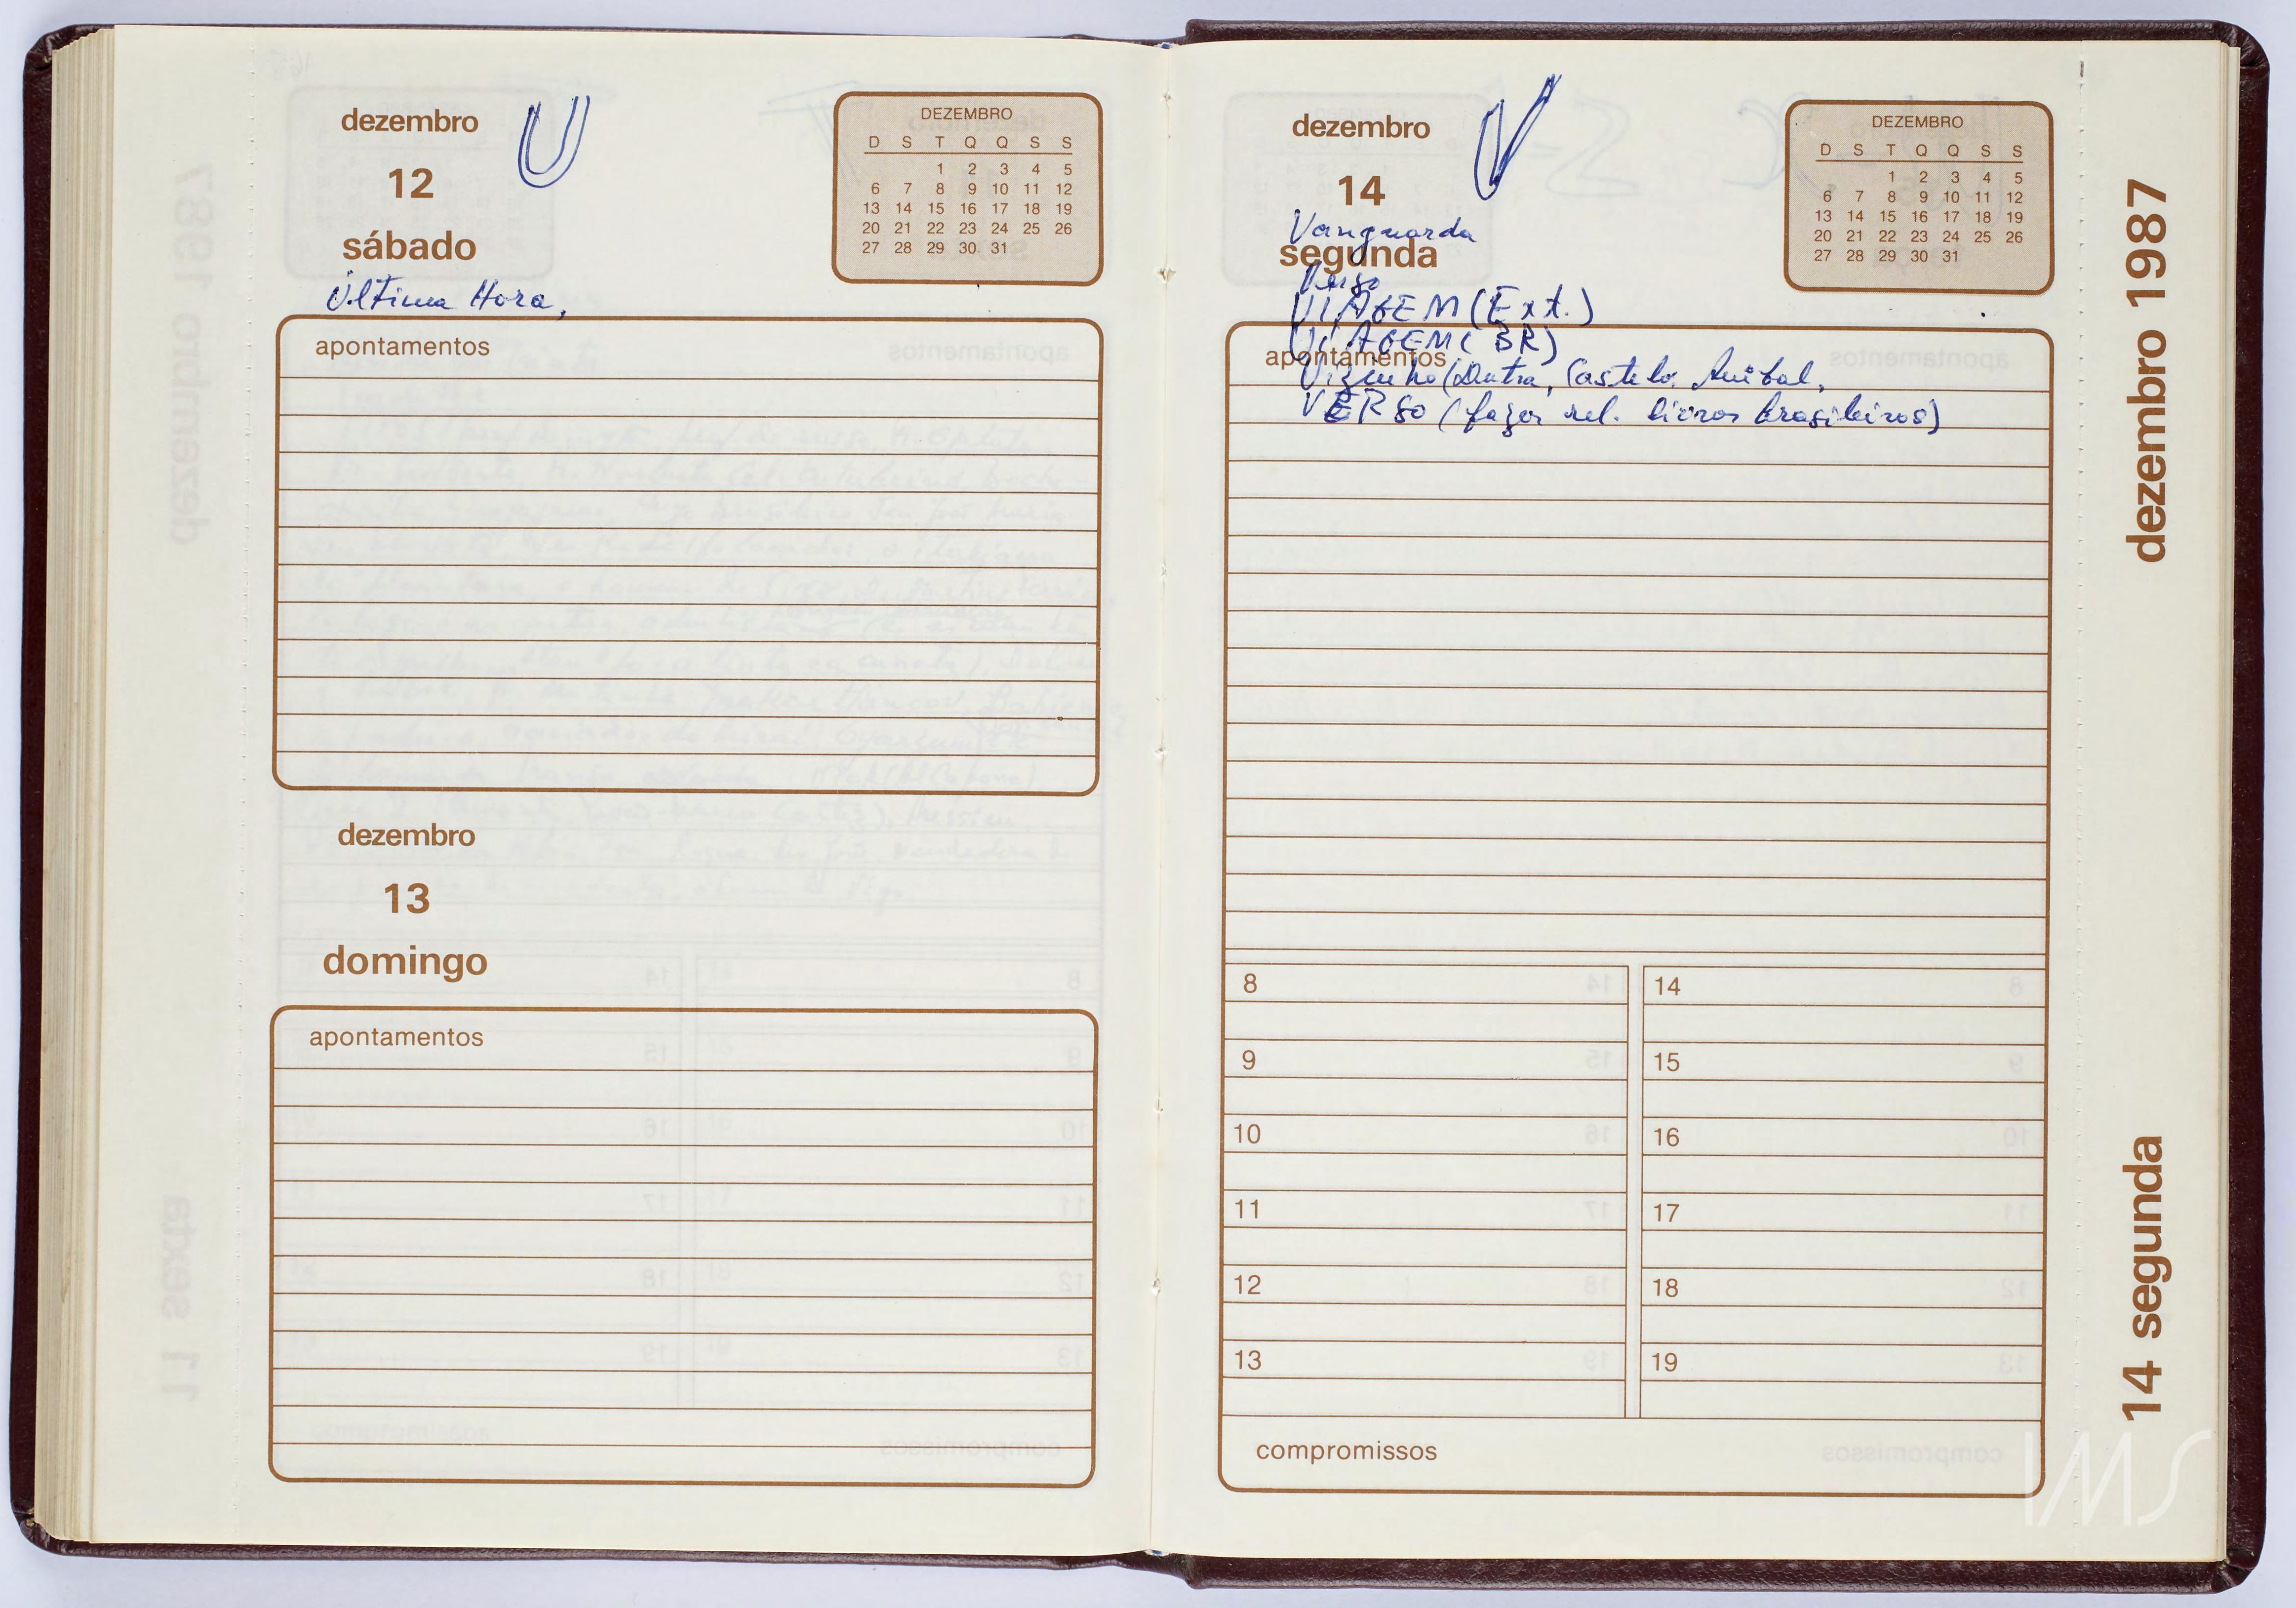 dezembro
U
12
sábado
Última Hora,
DEZEMBRO
D S T Q Q S S
1 2 3 4 5
6 7 8 9 10 11 12
13 14 15 16 17 18 19
20 21 22 23 24 25 26
27 28 29 30 31
apontamentos
dezembro
13
domingo
apontamentos
dezembro
V
14
Vanguarda
segunda
Verso
VIAGEM (Ext.)
VIAGEM (BR)
apontamentos
Vizinho (Dutra, Castelo, Anibal,
VERSO (fazer rel. livros brasileiros)
DEZEMBRO
D S T Q Q S S
1 2 3 4 5
6 7 8 9 10 11 12
13 14 15 16 17 18 19
20 21 22 23 24 25 26
27 28 29 30 31
8 14
9 15
10 16
11 17
12 18
13 19
compromissos
dezembro 1987
14 segunda
IMS